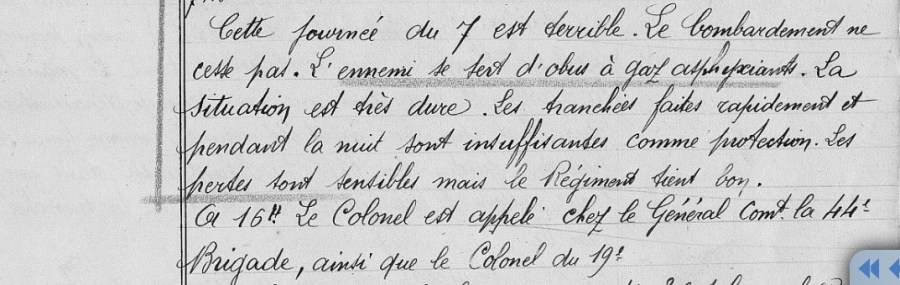 Cette journeé du 7 est terrible. Le bombardement ne
cesse pas. L'ennemi se sert d'obus à gaz asphyxiants. La
situation est très dure. Les tranchées faites rapidement et
pendant la nuit sont insuffisantes comme protection. Les
pertes sont sensibles mais le Régiment tient bon.
A 16H Le Colonel est appelé chez le Général Comt la 44e
Brigade, ainsi que le Colonel du 19e